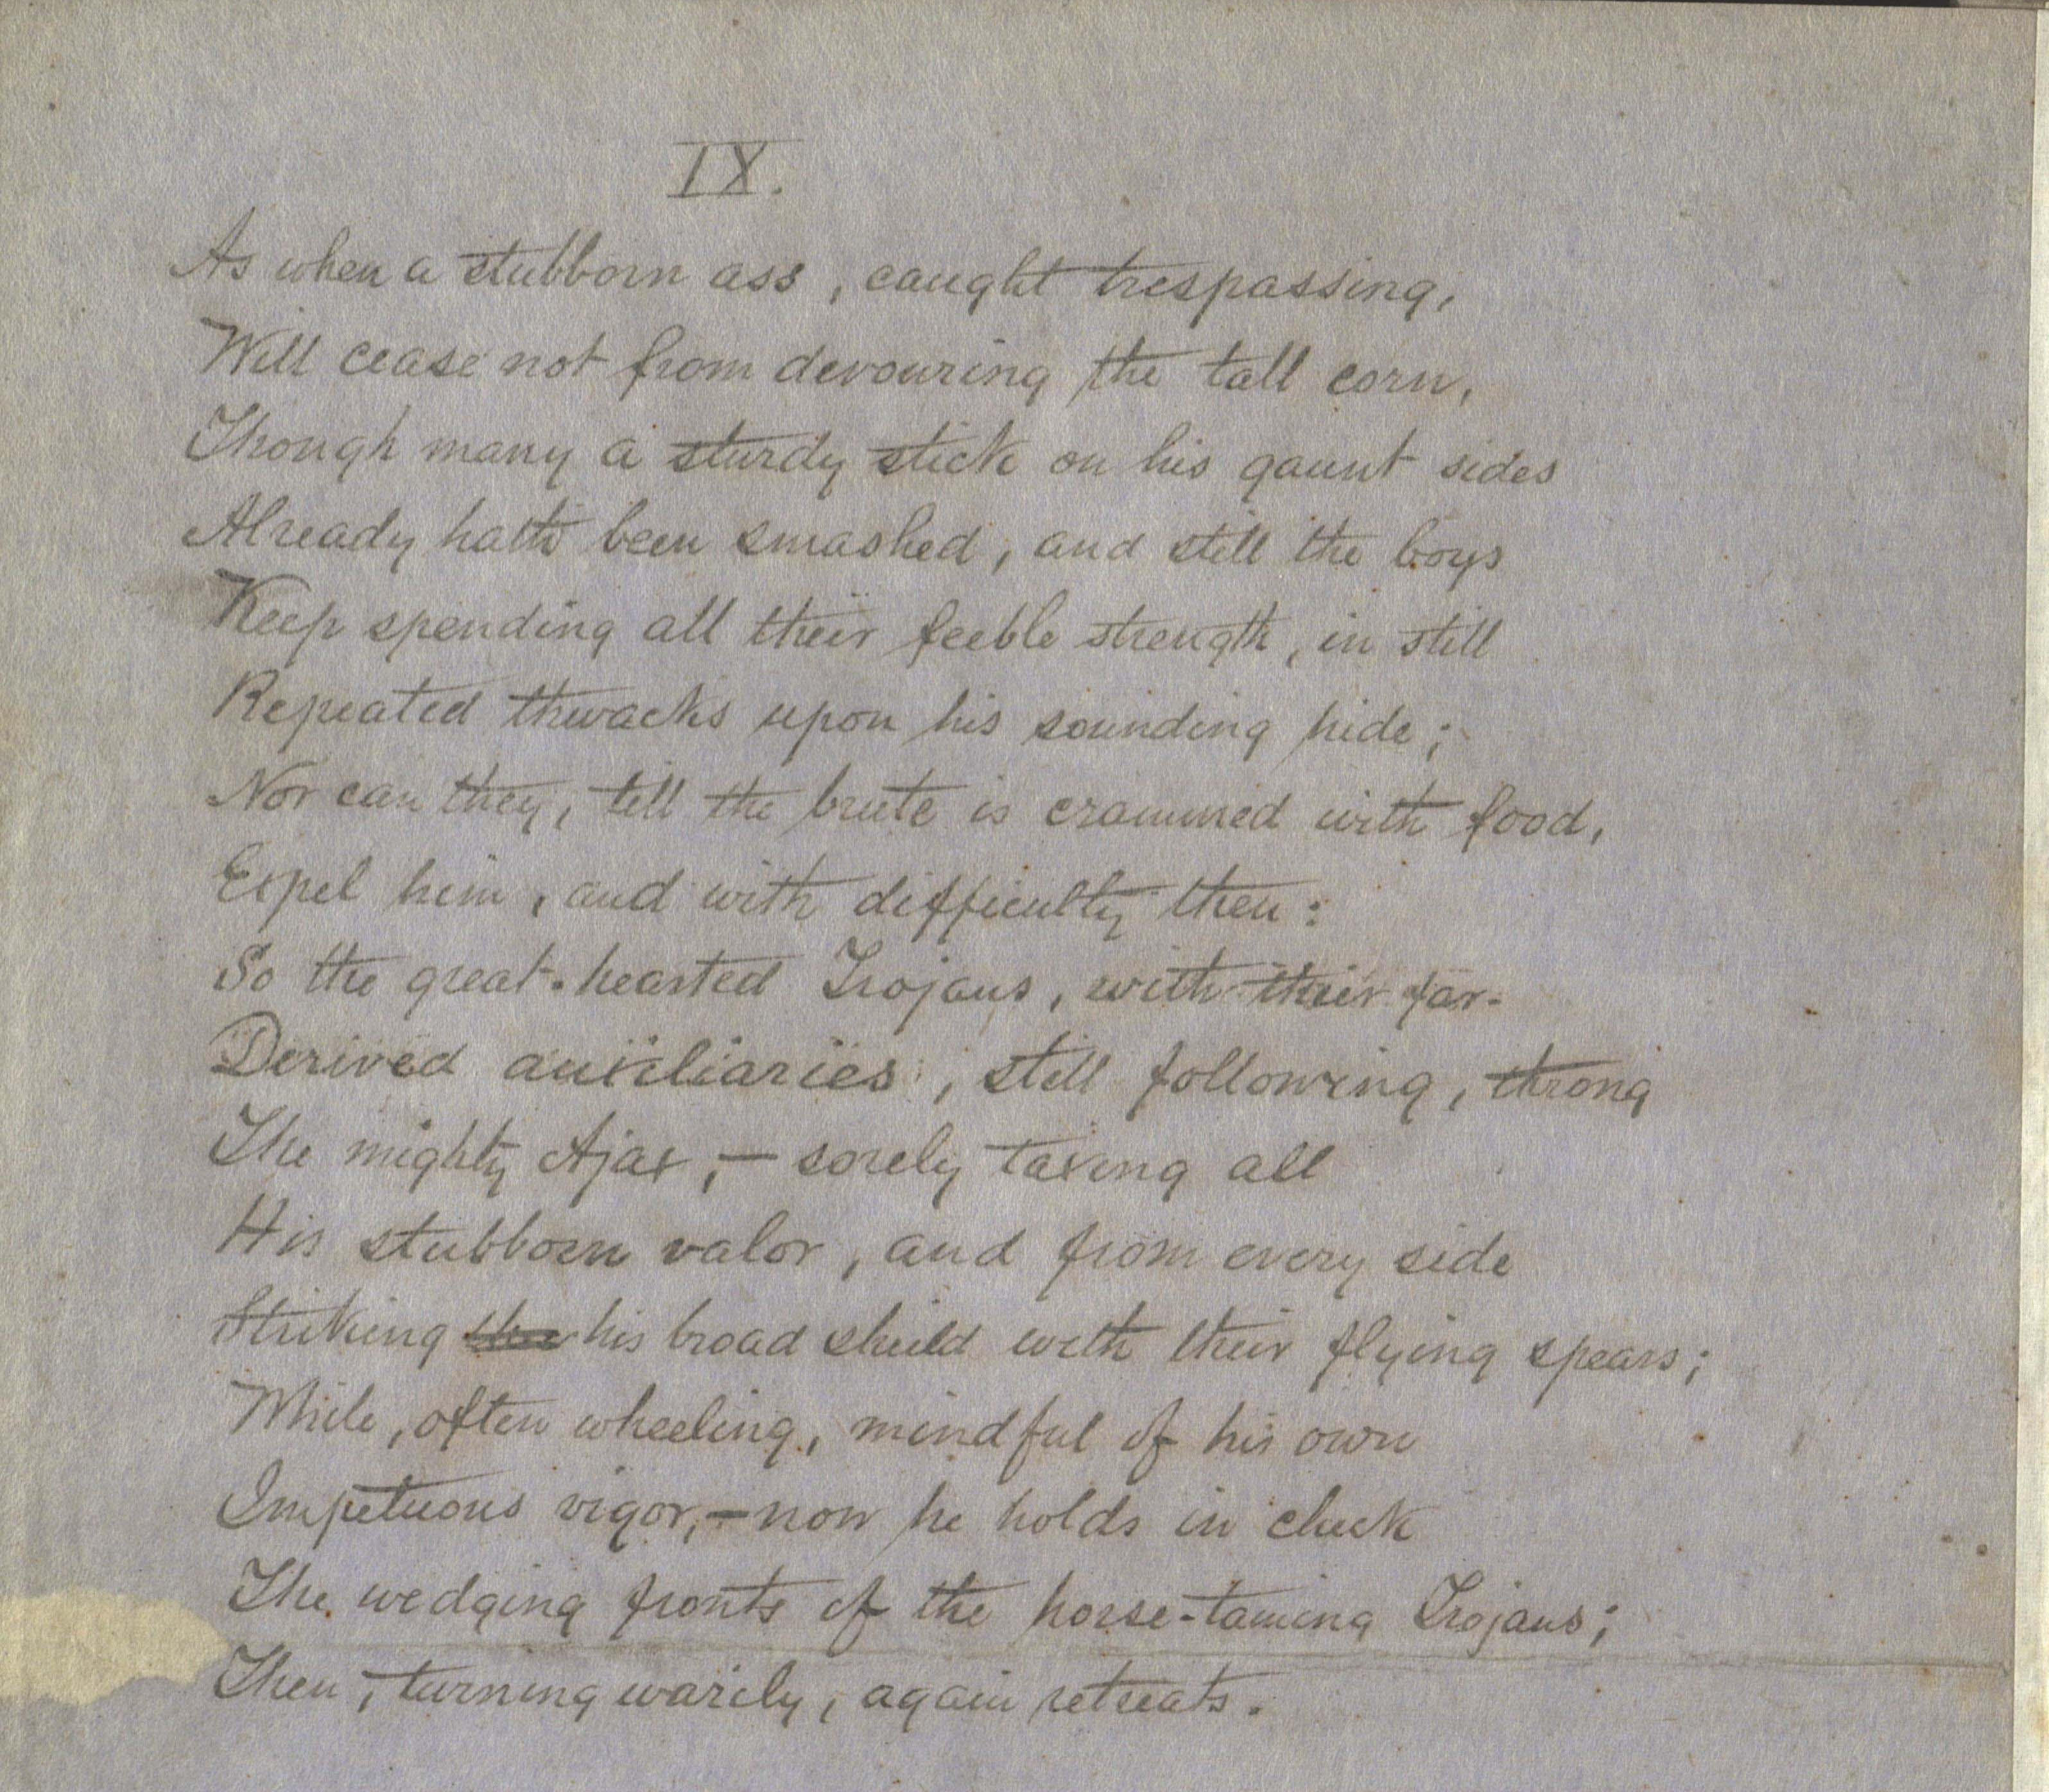 IX.
As when a stubborn ass, caught trespassing,
Will cease not from devouring the tall corn,
Though many a sturdy stick on his gaunt sides
Already hath been smashed, and still the boys
Keep spending all their feeble strength, in still
Repeated thwacks upon his sounding hide;
Nor can they, till the brute is crammed with food,
Expel him, and with difficulty then:
So the great-hearted Trojans, with their far-
Derived auxiliaries, still following, throng
The mighty Ajax,— sorely taxing all
His stubborn valor, and from every side
Striking his broad shield with their flying spears;
While, often wheeling, mindful of his own
Impetuous vigor,—now he holds in check
The wedging fronts of the horse-taming Trojans;
Then, turning warily, again retreats.